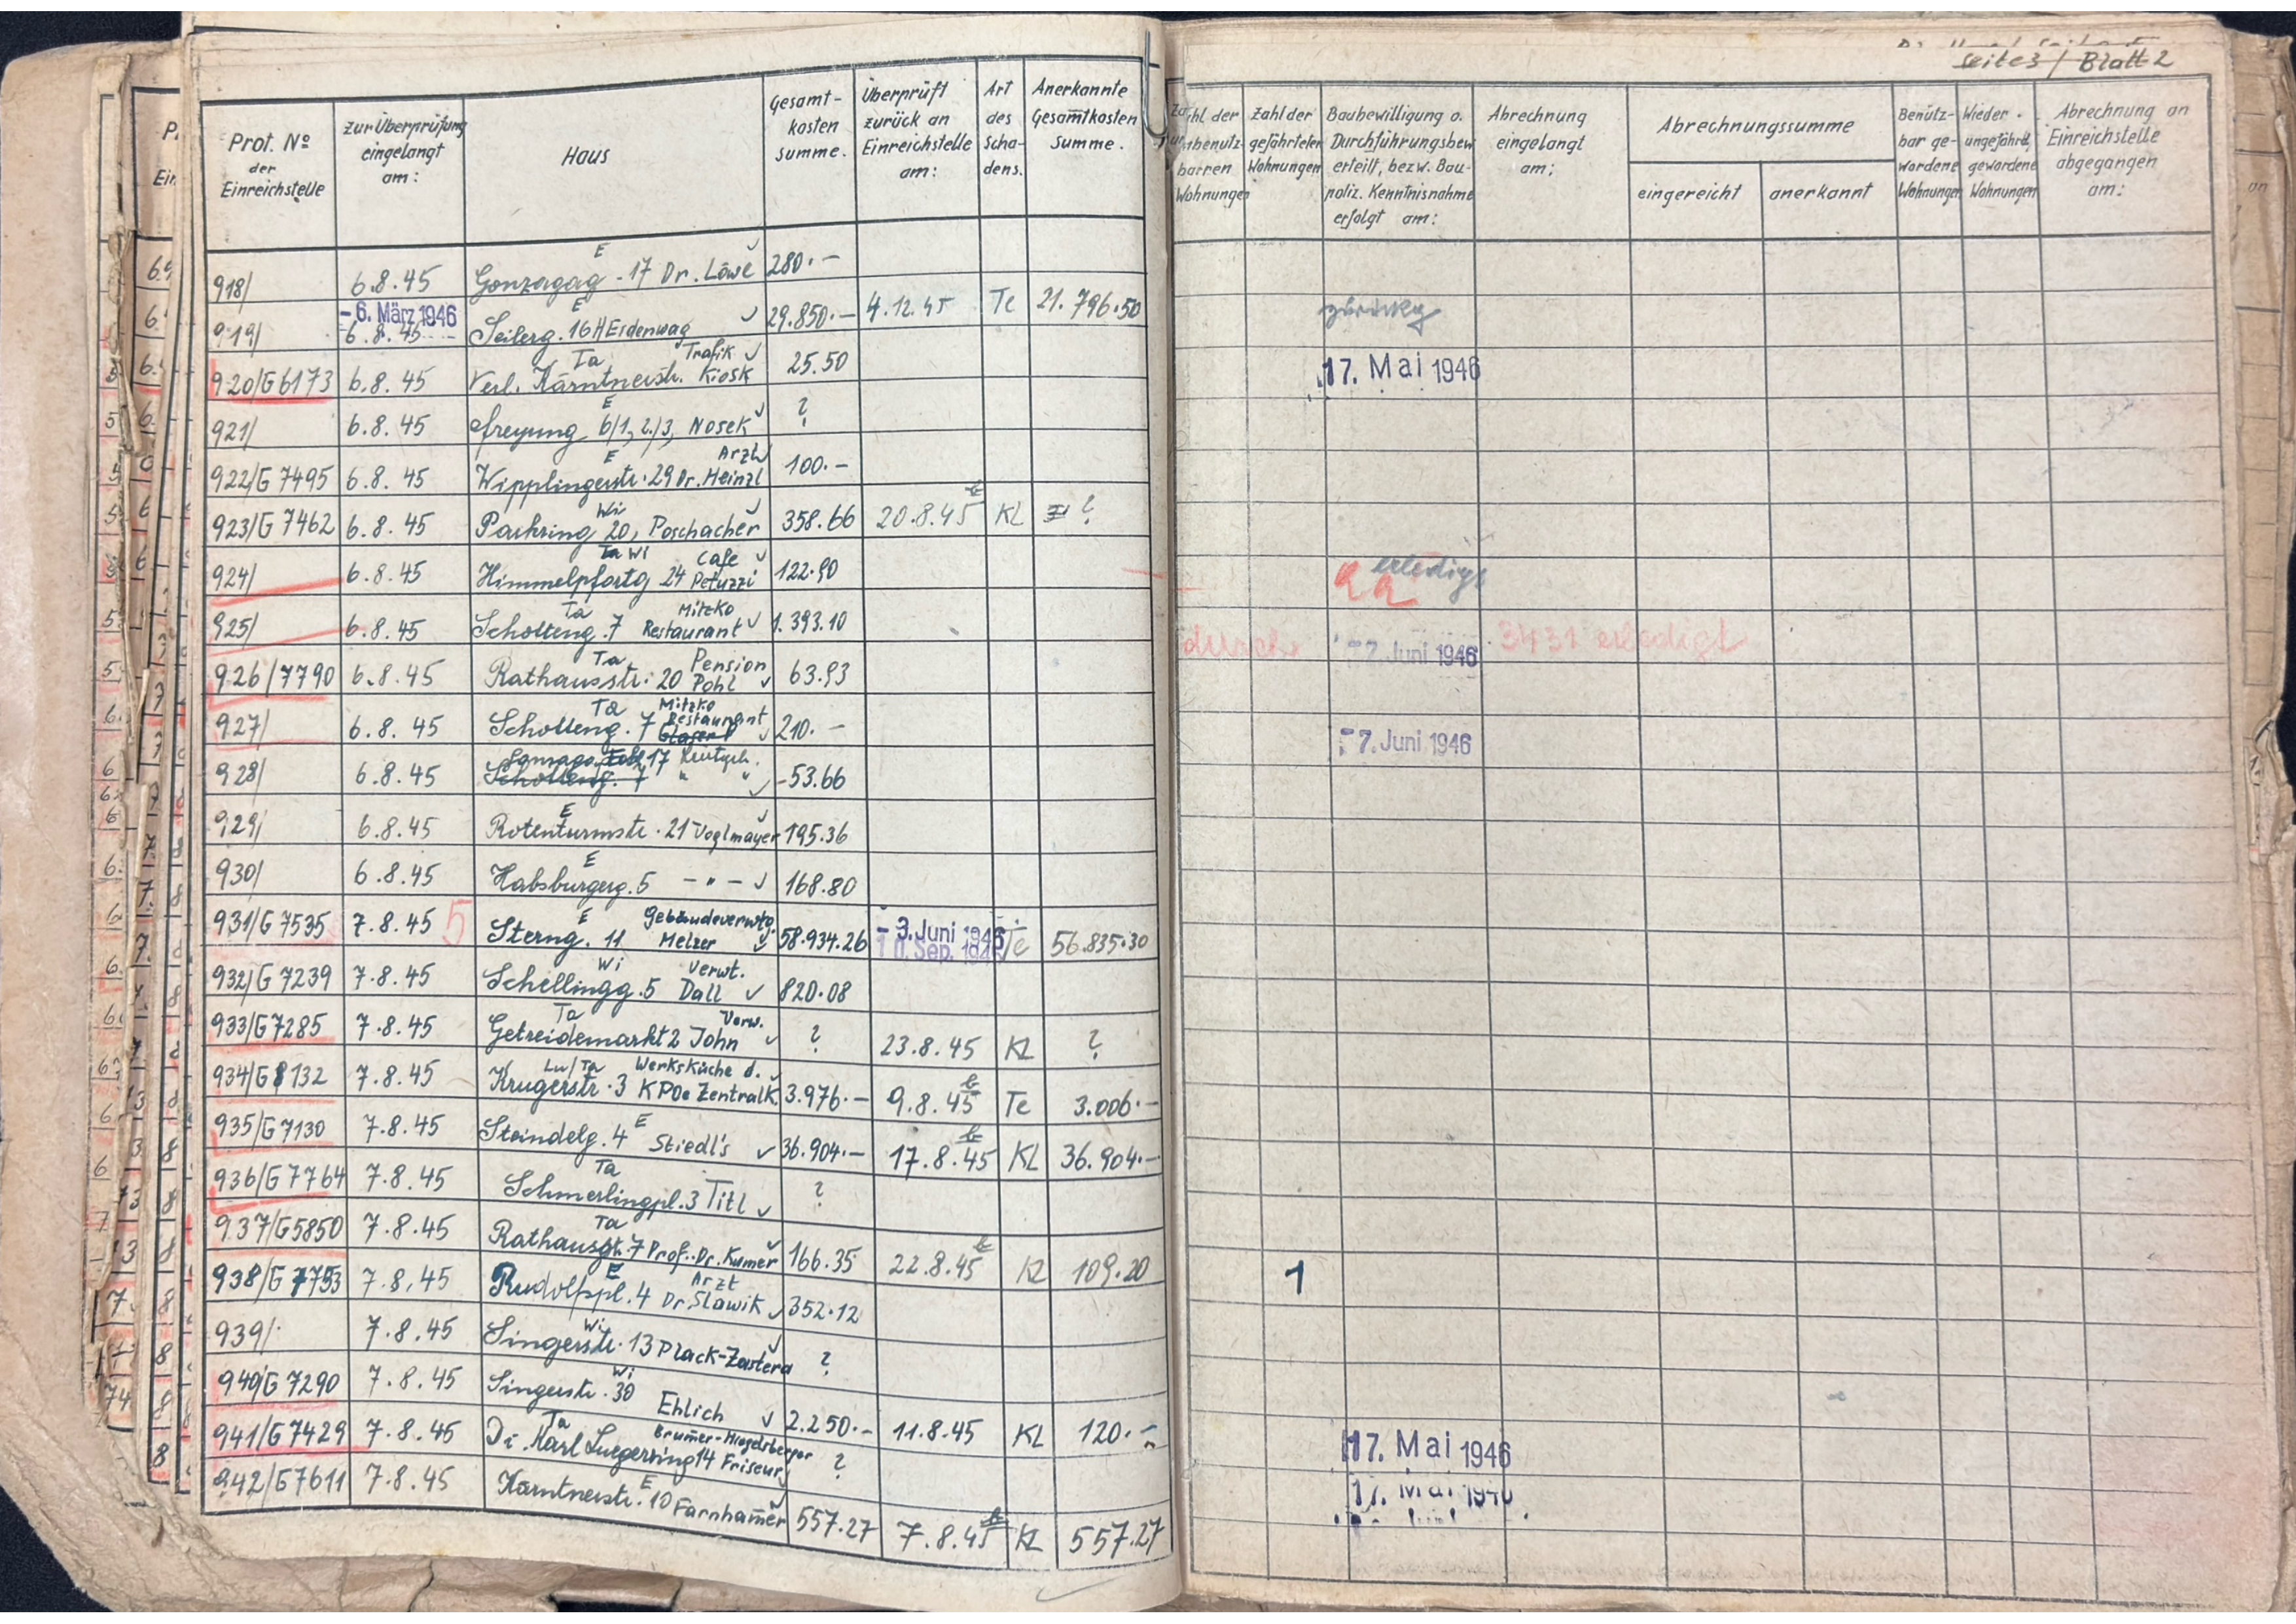 Seite 3 / Blatt 2
Prot. Nº der Einreichstelle
zur Überprüfung eingelangt am:
Haus
Gesamt-kosten summe.
Überprüft zurück an Einreichstelle am:
Art des Scha-dens.
Anerkannte Gesamtkosten Summe.
Zahl der unbenutz-barren Wohnungen
Zahl der gefährteten Wohnungen
Baubewilligung o. Durchführungsbew. erteilt, bezw. Bau-poliz. Kenntnisnahme erfolgt am:
Abrechnung eingelangt am:
Abrechnungssumme
eingereicht
anerkannt
Benütz-bar ge-wordene Wohnungen
Wieder ungefährd. gewordene Wohnungen
Abrechnung an Einreichstelle abgegangen am:
918/ 6.8.45 Gonzagag. 17 E Dr. Löwe 280.-
919/ - 6. März 1946 6.8.45 Seilerg. 16 E 29.850.- 4.12.45 Te 21.796.50
920/G6173 6.8.45 Verl. Kärntnerstr. Ta Trafik Kiosk 25.50 17. Mai 1946
921/ 6.8.45 Freyung 6/1, 2/3, E Nosek ?
922/G 7495 6.8.45 Wipplingerstr. 29 E Arzt Dr. Heinzl 100.-
923/G 7462 6.8.45 Parkring 20, Wi Poschacher 358.66 20.8.45 KL ?
924/ 6.8.45 Himmelpfortg 24 Ta Wi Cafe Petuzzi 122.90 erledigt
925/ 6.8.45 Schotteng. 7 Ta Mitzko Restaurant 1.393.10 3431 erledigt
926/7790 6.8.45 Rathausstr. 20 Ta Pension Pohl 63.93 - 7. Juni 1946
927/ 6.8.45 Schotteng. 7 Ta Mitzko Restaurant Glaserl 210.-
928/ 6.8.45 Schotteng. 7 17 " " 53.66 - 7. Juni 1946
929/ 6.8.45 Rotenturmstr. 21 E Voglmayer 195.36
930/ 6.8.45 Habsburgerg. 5 E - " - 168.80
931/G 7535 7.8.45 5 Sterng. 11 E Gebäudeverwtg. Melzer 58.934.26 - 3. Juni 1946 10. Sep. 1945 Te 56.835.30
932/G 7239 7.8.45 Schellingg. 5 Wi Verwt. Dall 820.08
933/G7285 7.8.45 Getreidemarkt 2 Ta Verw. John ? 23.8.45 KL ?
934/G8132 7.8.45 Krugerstr. 3 Lu/Ta Werksküche d. KPOe Zentralk. 3.976.- 9.8.45 Te 3.006.-
935/G7130 7.8.45 Steindelg. 4 E Stiedl's 36.904.- 17.8.45 KL 36.904.-
936/G7764 7.8.45 Schmerlingpl. 3 Ta Titl ?
937/G5850 7.8.45 Rathausstr. 7 Ta Prof. Dr. Kumer 166.35 22.8.45 KL 109.20
938/G 7753 7.8.45 Rudolfspl. 4 E Arzt Dr. Slawik 352.12 1
939/ 7.8.45 Singerstr. 13 Wi Plack-Zastera ?
940/G 7290 7.8.45 Singerstr. 30 Wi Ehlich 2.250.- 11.8.45 KL 120.-
941/G7429 7.8.45 Dr. Karl Luegerring 14 Ta Friseur ? 17. Mai 1946
942/G7611 7.8.45 Kärntnerstr. 10 E Farnhamer 557.27 7.8.45 KL 557.27 17. Mai 1946